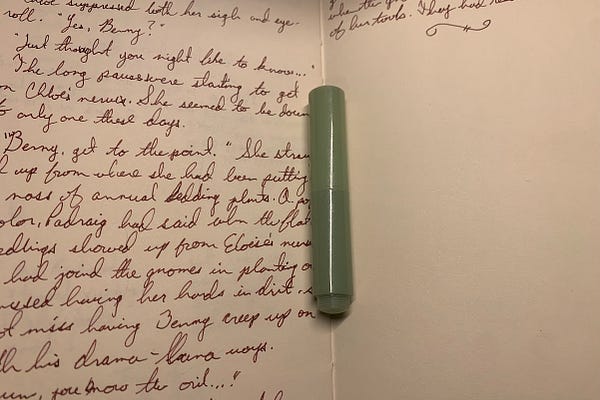 Chloe suppressed both her sigh and eye-
roll. "Yes, Benny?"
"Just thought you night like to know..."
The long pauses were starting to get
on Chloe's nerves. She seemed to be down
to only one these days.
"Benny, get to the point." She
up from where she had been putting
mass of annual bedding plants. A
color, Padraig had said when the flat
edlings showed up from Eloise's
had joind the gnomes in planting
missed having her hands in dirt.
miss having Benny creep up on
his drama-llama ways.
you know the oril...!"
of her tools. They had